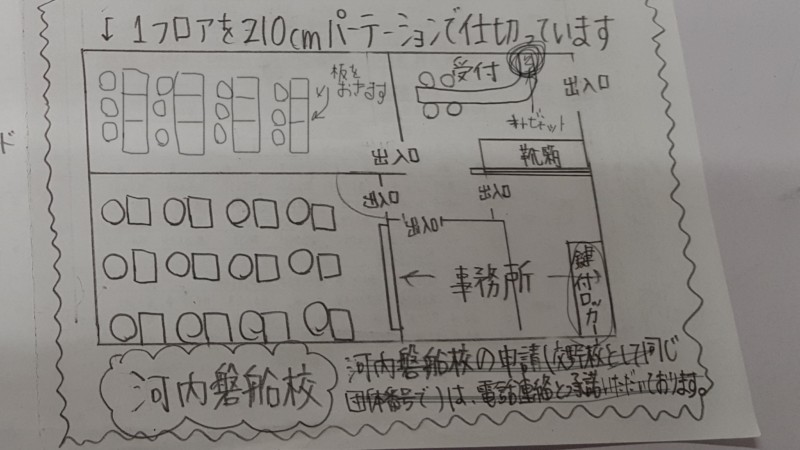 ↓1フロアを210cmパーテーションで仕切っています
板を
おきます
受付
出入口
キャビネット
靴箱
出入口
出入口
出入口
出入口
← 事務所 →
鍵付ロッカー
ド
河内磐船校
河内磐船校の申請(交野校として同じ
団体番号で)は、電話連絡と承諾いただいております。